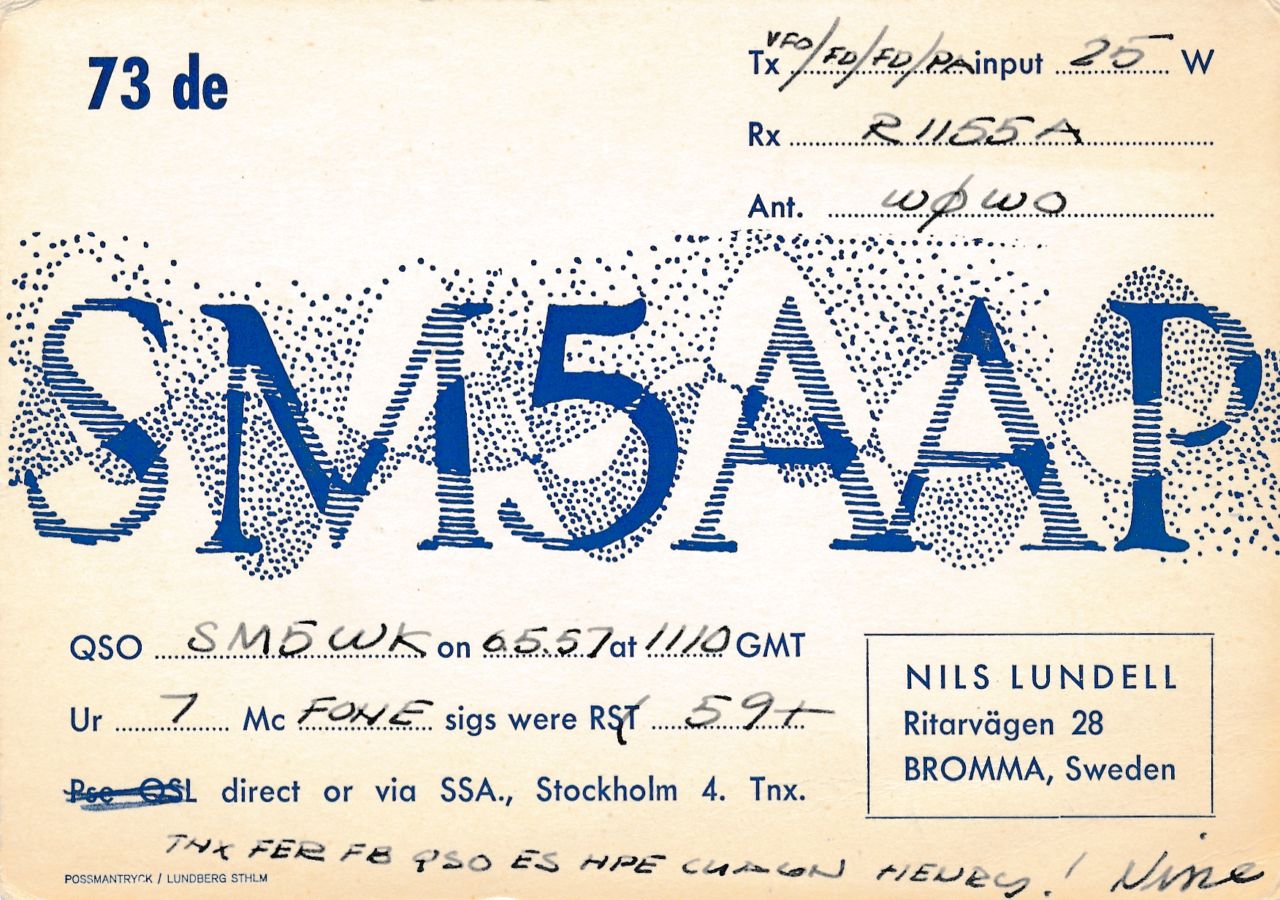 73 de
Tx VFO/FD/FD/PA input 25 W
Rx R1155A
Ant. WØWO
SM5AAP
QSO SM5WK on 6.5.57 at 1110 GMT
Ur 7 Mc FONE sigs were RST 59+
Pse QSL direct or via SSA., Stockholm 4. Tnx.
NILS LUNDELL
Ritarvägen 28
BROMMA, Sweden
TNX FER FB QSO ES HPE CUAGN HENRY!
POSSMANTRYCK / LUNDBERG STHLM